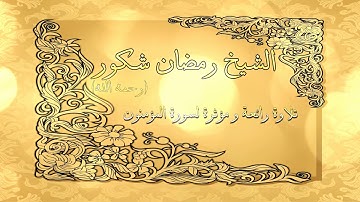 الشيخ رمضان شكور
(رحمه الله)
تلاوة رائعة و مؤثرة لسورة المؤمنون